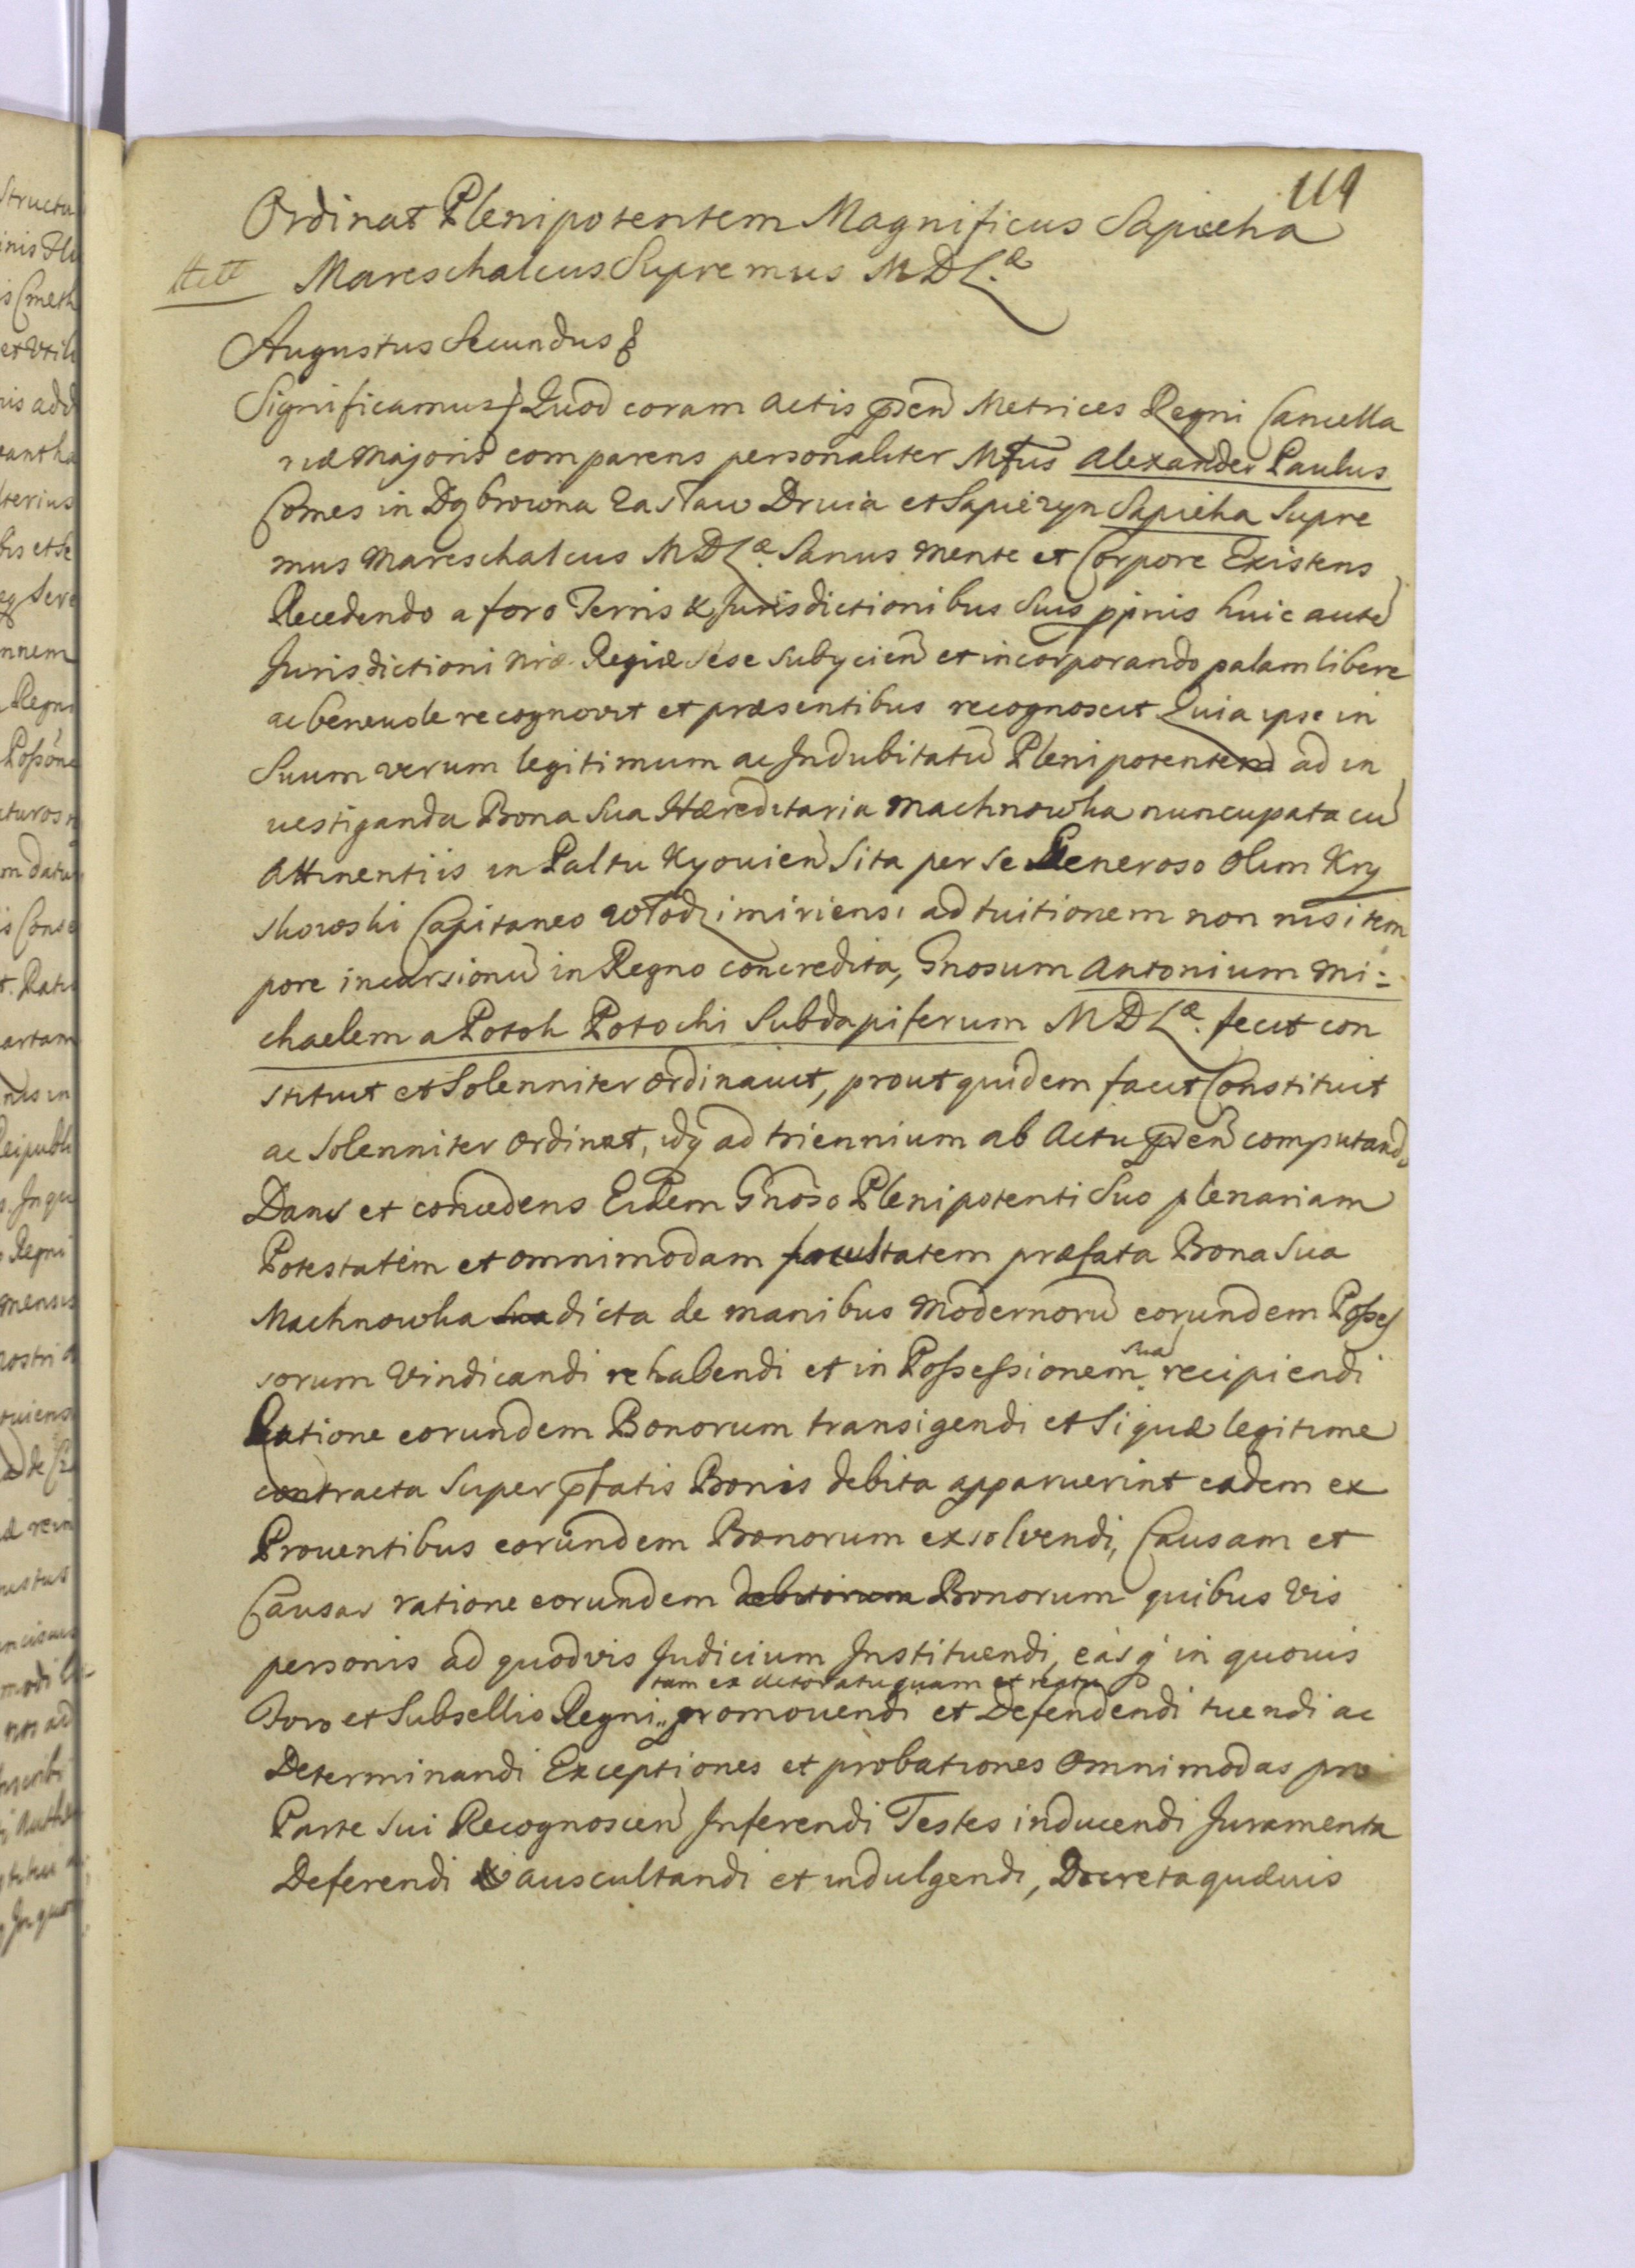 119
Ordinat Plenipotentem Magnificus Sapieha
Mareschalcus Supremus MDLæ
Augustus Secundus
Significamus Quod coram Actis pñsen Metrices Regni Cancella
riæ Majoris comparens personaliter Mfus Alexander Paulus
Comes in Dąbrowna Zasław Druia et Sapiezyn Sapieha Supre
mus Mareschalcus MDLæ. Sanus mente et Corpore Existens
Recedendo a foro Terris & Jurisdictionibus Suis ppriis huic autē
Jurisdictioni nræ Regiæ sese subycien̄ et incorporando palam libere
ac beneuole recognovit et præsentibus recognoscit Quia ipse in
Suum verum legitimum ac Indubitatū Plenipotentem ad in
uestiganda Bona Sua Hæreditaria Machnowka nuncupata cū
Attinentiis in Paltu Kyouien̄ Sita per se Generoso olim Kry
skowski Capitaneo Włodzimiriensi ad tuitionem non nisi tem
pore incursionū in Regno concredita, Gnosum Antonium Mi=
chaelem a Potok Potocki Subdapiferum MDLæ. fecit con
stituit et Solenniter ordinauit, prout quidem facit Constituit
ac Solenniter ordinat, idq ad triennium ab Actu pñsen̄ computando
Dans et concedens Eidem Gnoso Plenipotenti Suo plenariam
Potestatem et omnimodam facultatem præfata Bona Sua
Machnowka sua dicta de manibus Modernorū eorundem Posses
sorum Vindicandi rehabendi et in Possessionem suā recipiendi
Ratione eorundem Bonorum transigendi et Si quæ legitime
contracta Super pfatis Bonis debita apparuerint eadem ex
Prouentibus eorundem Bonorum exsolvendi, Causam et
Causas ratione eorundem debitorum Bonorum quibus Vis
personis ad quodvis Judicium Instituendi, easq in quouis
tam ex actoratu quam et reatu
Foro et Subsellio Regni promouendi et Defendendi tuendi ac
Determinandi Exceptiones et probationes Omnimodas pro
Parte Sui Recognoscen̄ Inferendi Testes inducendi Juramenta
Deferendi & auscultandi et indulgendi, Decreta quæuis